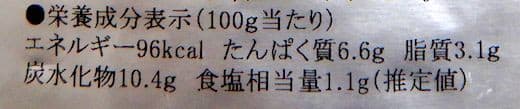 ●栄養成分表示(100g当たり)
エネルギー96kcal たんぱく質6.6g 脂質3.1g
炭水化物10.4g 食塩相当量1.1g(推定値)